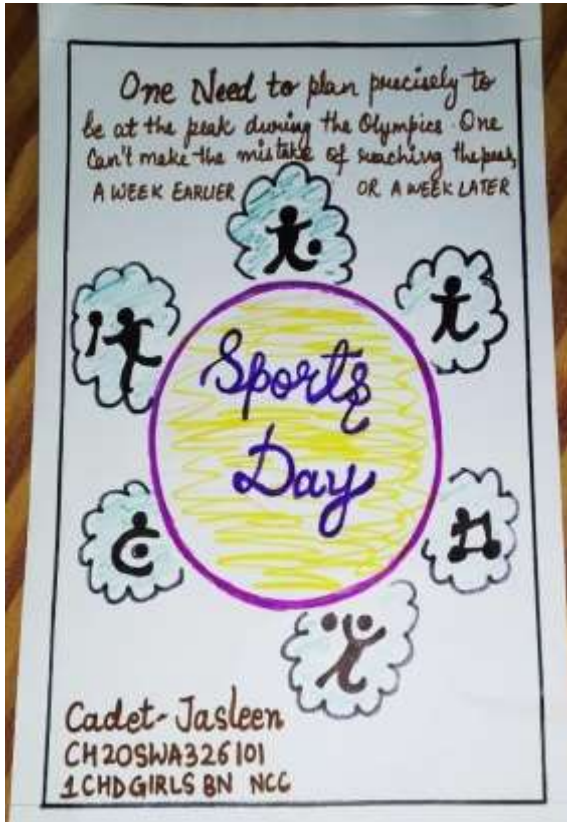 One Need to plan precisely to
be at the peak during the Olympics. One
Can't make the mistake of reaching the peak,
A WEEK EARLIER OR A WEEK LATER
Sports
Day
Cadet-Jasleen
CH20SWA326101
1CHDGIRLS BN NCC